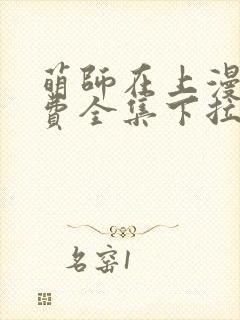 萌師在上漫
費全集下拉
名窑1